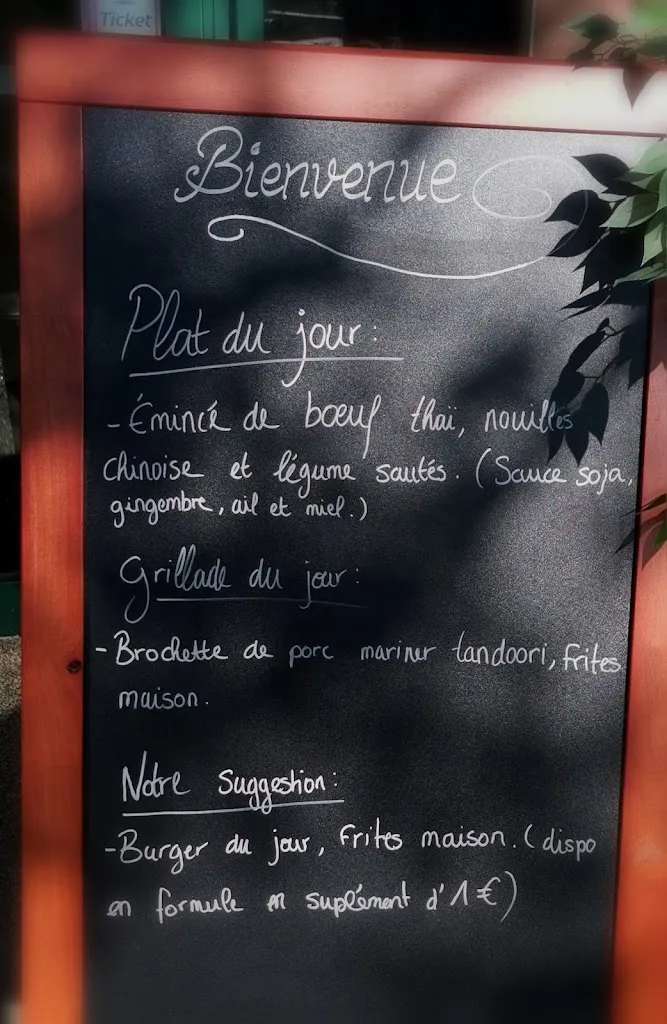 Ticket
Bienvenue
Plat du jour :
- Émincé de bœuf thaï, nouilles
chinoise et légume sautés. (Sauce soja,
gingembre, ail et miel.)
Grillade du jour :
- Brochette de porc mariner tandoori, frites
maison.
Notre Suggestion :
- Burger du jour, Frites maison. (dispo
en formule en suplément d'1€)